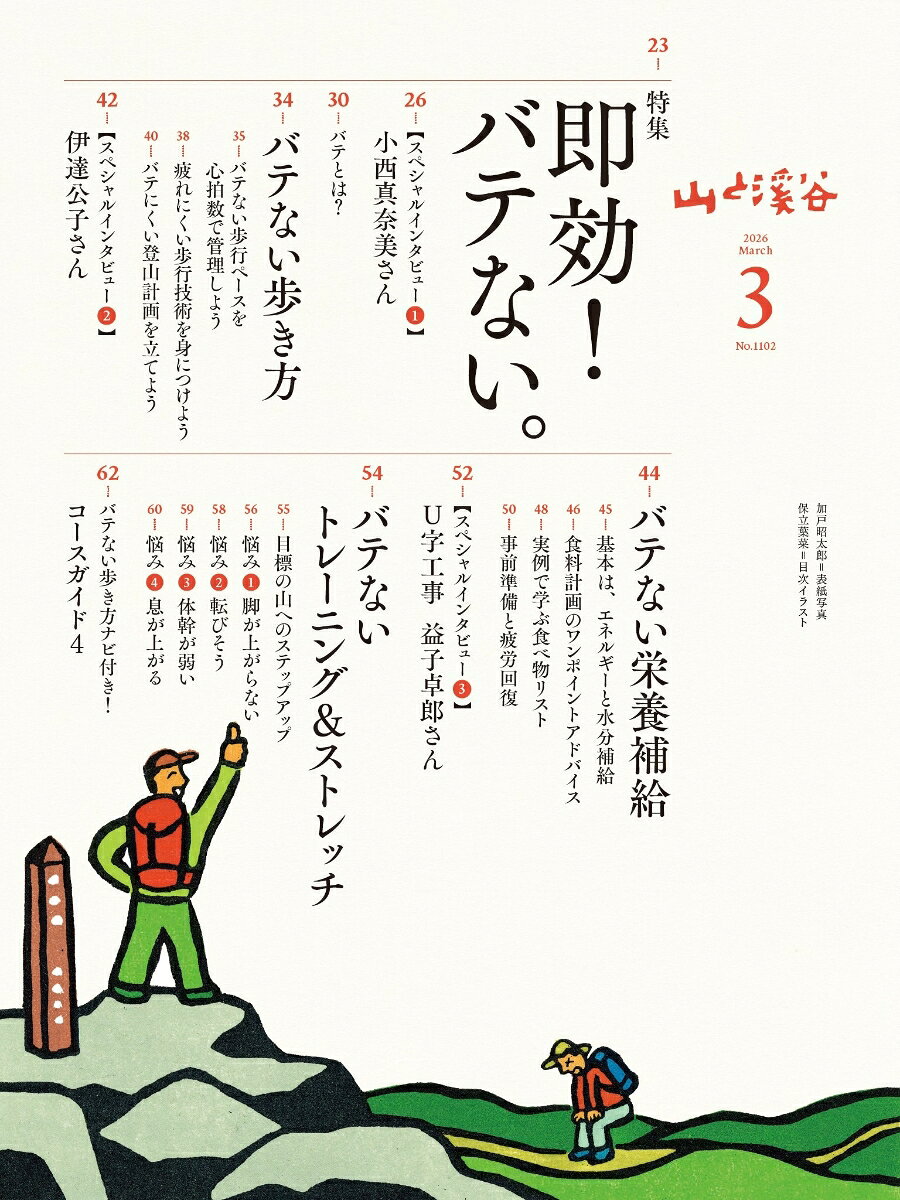 山と溪谷
2026
March
3
No.1102
加戸昭太郎=表紙写真
保立葉菜=目次イラスト
23
特集
即効!
バテない。
26
【スペシャルインタビュー1】
小西真奈美さん
30
バテとは?
34
バテない歩き方
35
バテない歩行ペースを
心拍数で管理しよう
38
疲れにくい歩行技術を身につけよう
40
バテにくい登山計画を立てよう
42
【スペシャルインタビュー2】
伊達公子さん
44
バテない栄養補給
45
基本は、エネルギーと水分補給
46
食料計画のワンポイントアドバイス
48
実例で学ぶ食べ物リスト
50
事前準備と疲労回復
52
【スペシャルインタビュー3】
U字工事 益子卓郎さん
54
バテない
トレーニング&ストレッチ
55
目標の山へのステップアップ
56
悩み1 脚が上がらない
58
悩み2 転びそう
59
悩み3 体幹が弱い
60
悩み4 息が上がる
62
バテない歩き方ナビ付き!
コースガイド4